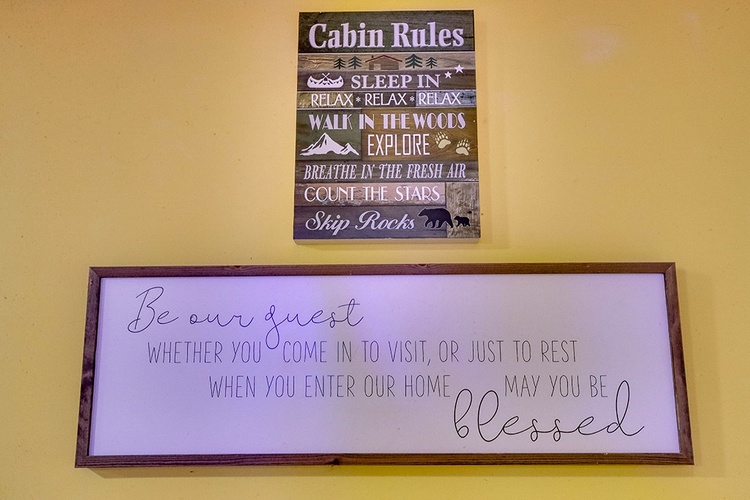 Cabin Rules
SLEEP IN
RELAX * RELAX * RELAX
WALK IN THE WOODS
EXPLORE
BREATHE IN THE FRESH AIR
COUNT THE STARS
Skip Rocks
Be our guest
WHETHER YOU COME IN TO VISIT, OR JUST TO REST
WHEN YOU ENTER OUR HOME MAY YOU BE
blessed